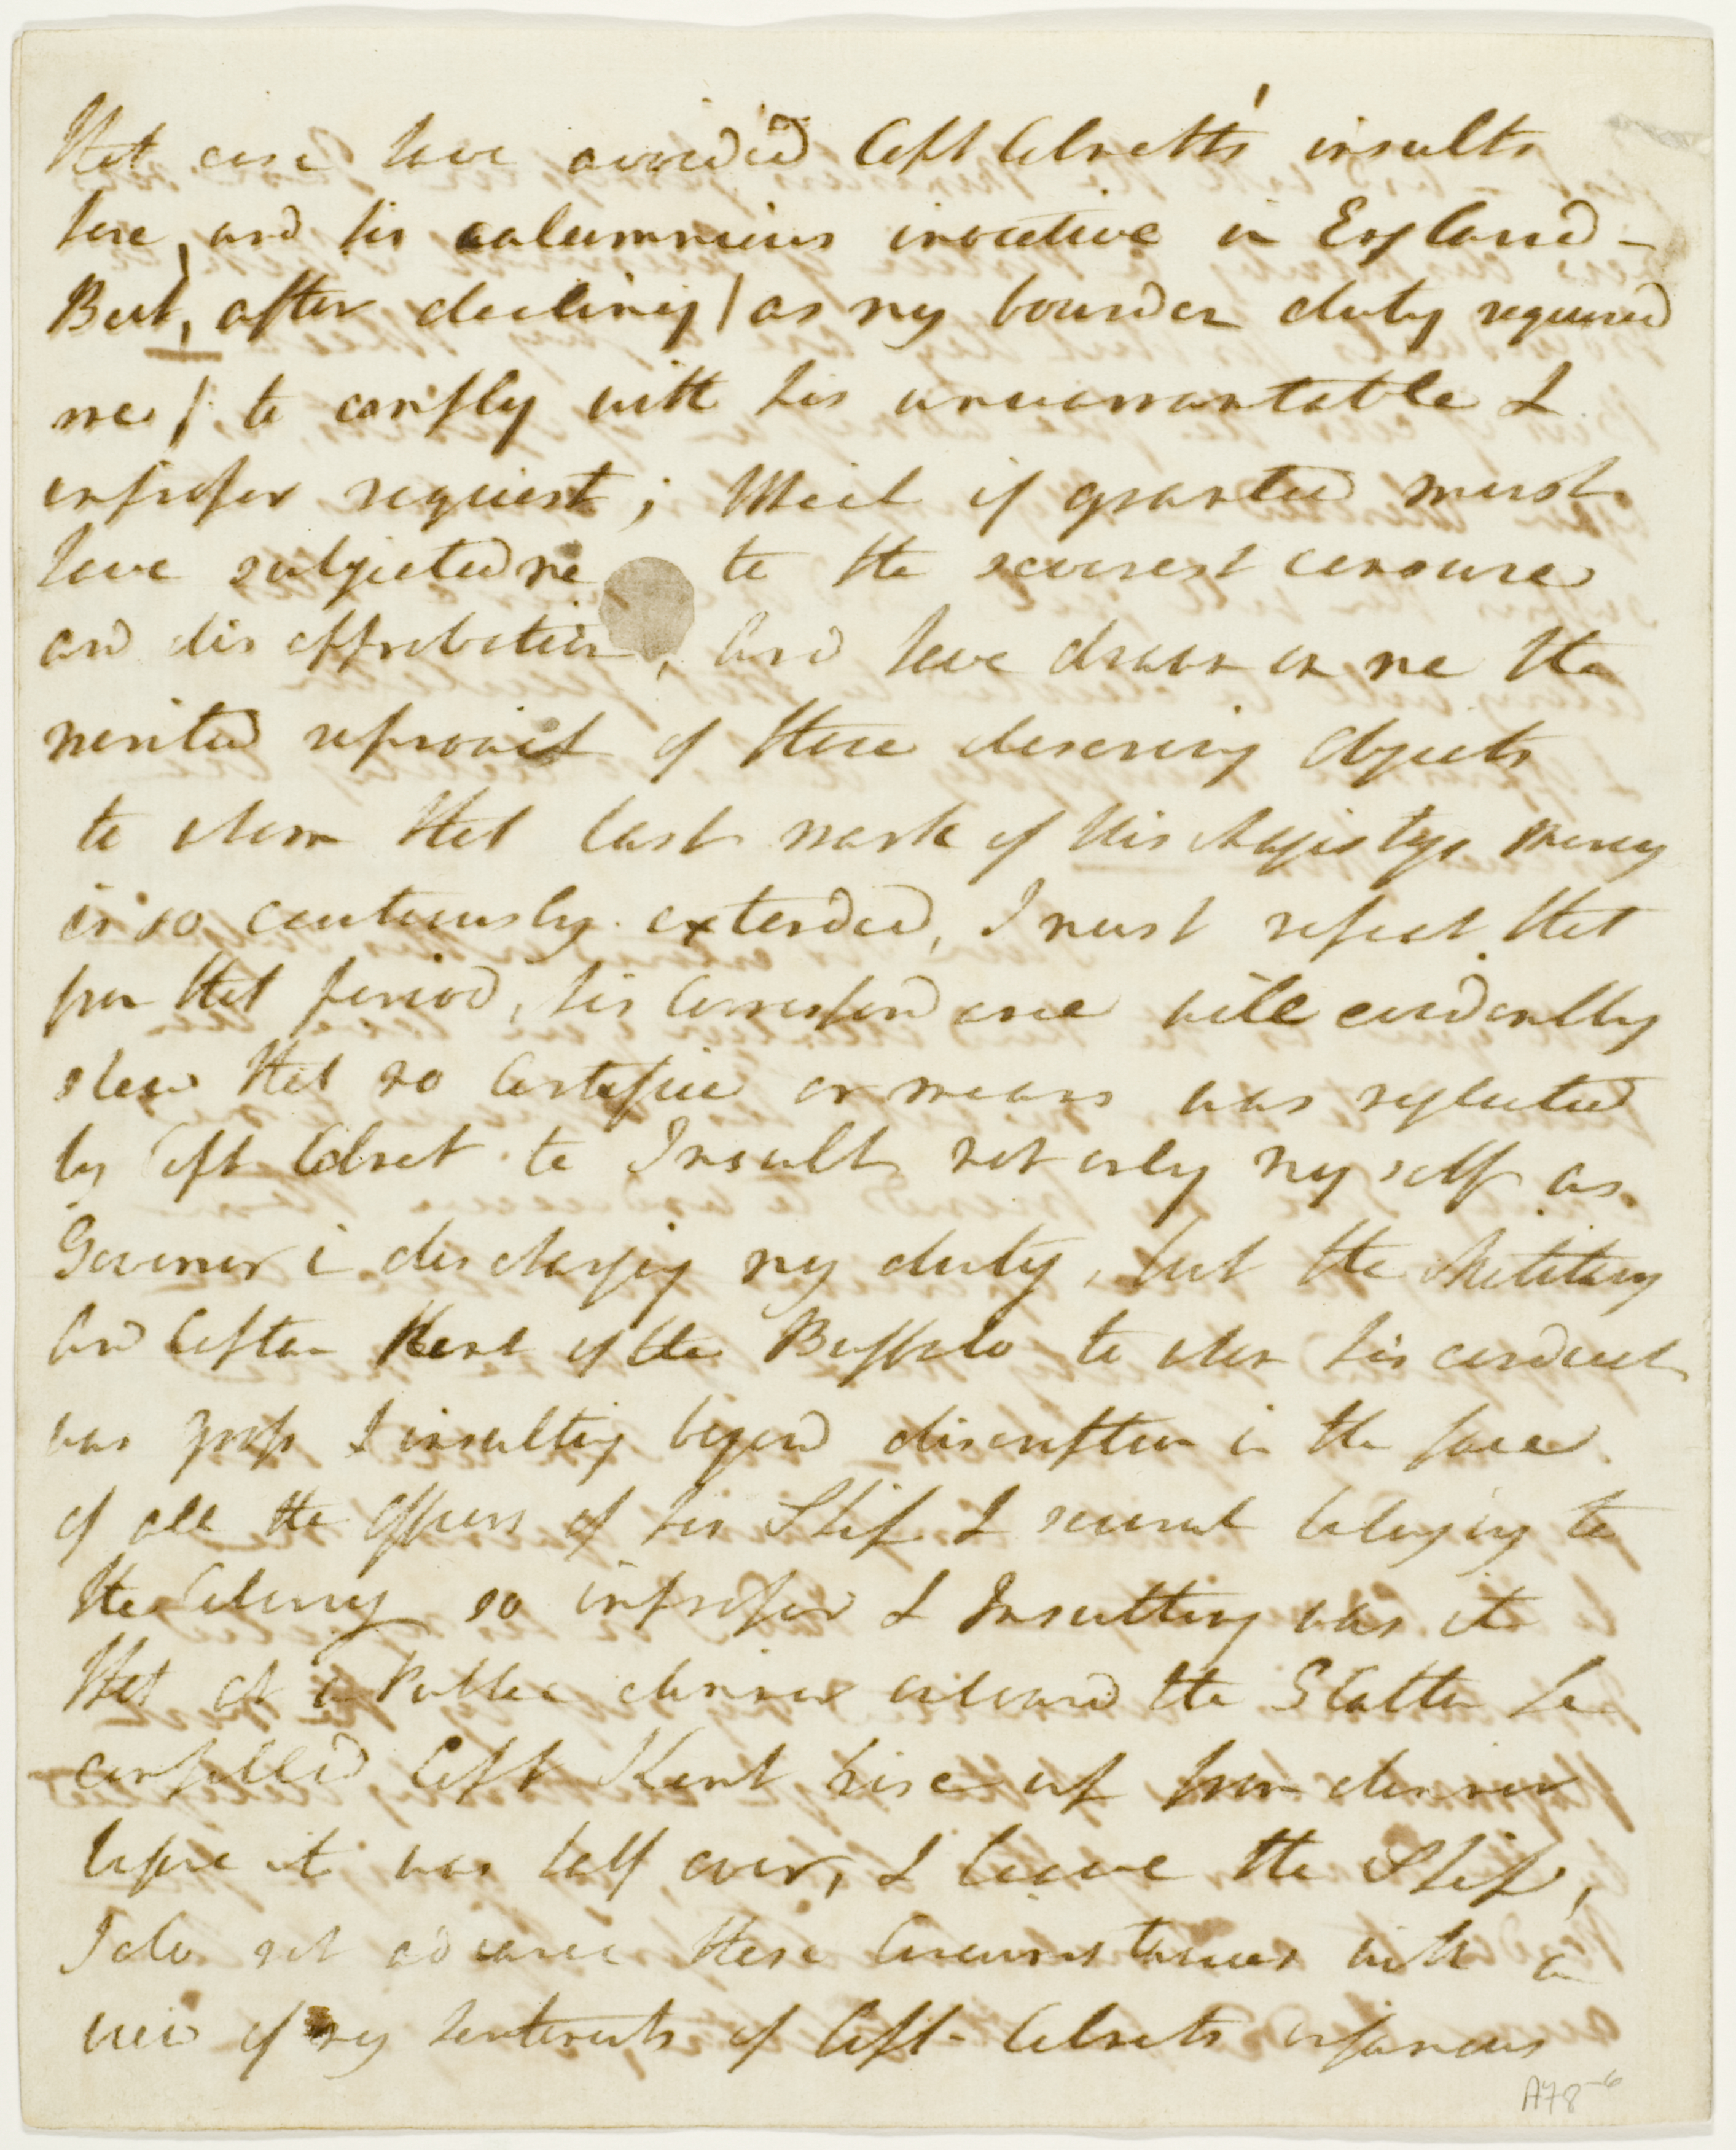 that case have avoided Capt Colnett's insults
here, and his calumnious invective in England -
But, after declining / as my bounden duty required
me / to comply with his unwarrantable &
improper request; Which if granted must
have subjected me to the severest censure
and disapprobation, and have drawn on me the
merited reproach of those deserving Objects
to whom that last mark of His Majestys Mercy
is so cautiously extended, I must repeat that
from that period, his Correspondence will evidently
shew that no Artifice or means was neglected
by Capt Colnet to Insult not only myself as
Governor in discharging my duty, but the Military
and Captain Kent of the Buffalo to whom his conduct
was gross & insulting beyond discription in the face
of all the Officers of his Ship & several belonging to
the Colony so improper & Insulting was it
that at a Public dinner onboard the Glatton he
compelled Capt Kent rise up from dinner
before it was half over, & leave the Ship,
I do not advance these Circumstances with a
view of my Sentiments of Capt Colnets infamous
A78-6